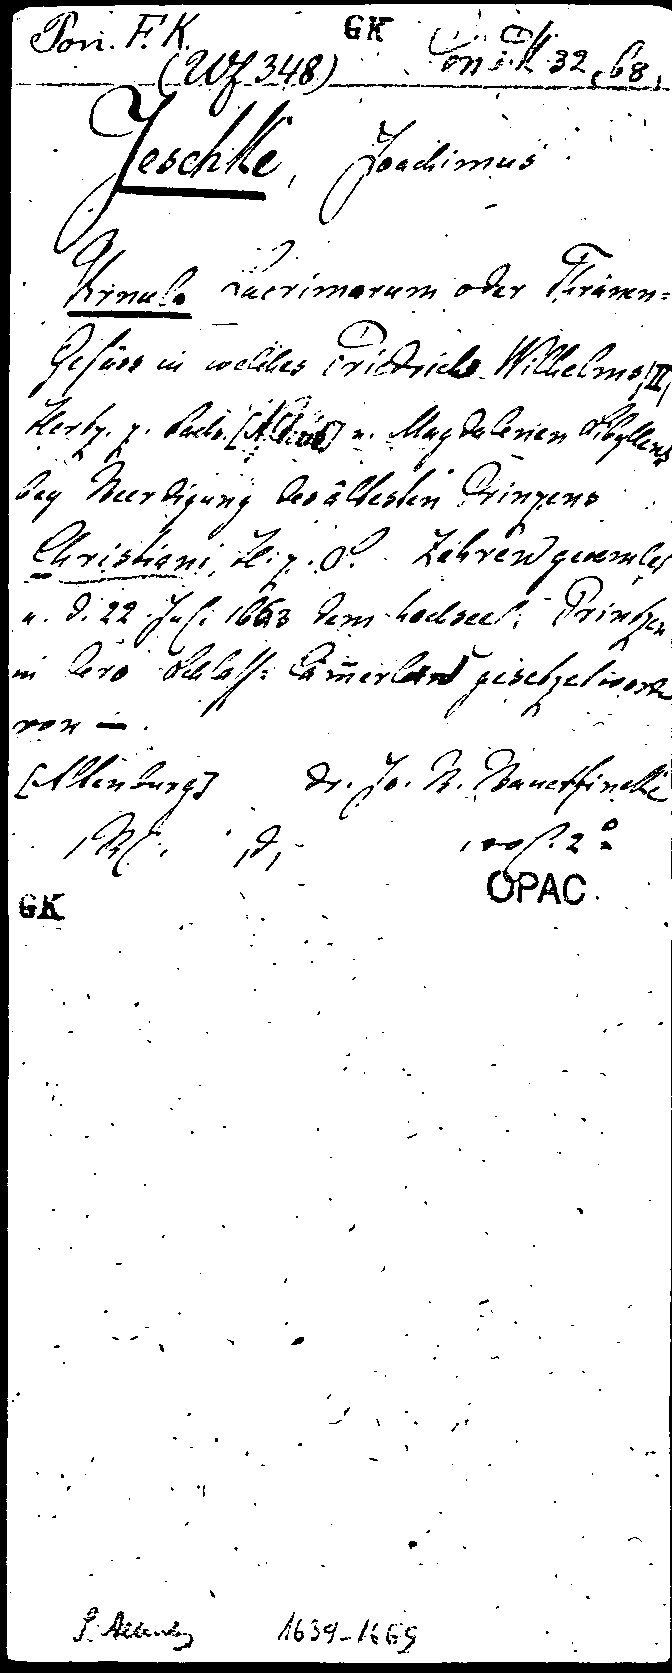 Pon. F. K. GK Pon. F.K. 32, 68,
(Wf 348)
Jeschke, Joachimus
Urnula Lacrimarum oder Thränen=
Gefäss in welches Friedrich Wilhelms, II,
Hertz. z. Sachs. u. Magdalenen Sibyllens
bey Beerdigung des ältesten Prinzens
Christiani, H. z. S. Zehren gesamlet
u. d. 22. Jul. 1663 dem hochseel. Printzen
in dero Schloss= gesetzet worden
von —.
[Altenburg] dr. Jo. B. Bauerfincke
GK OPAC.
1639-1669